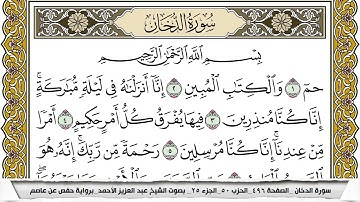 سُورَةُ الدُّخَانِ
بِسْمِ اللَّهِ الرَّحْمَٰنِ الرَّحِيمِ
حمٓ ١ وَالْكِتَابِ الْمُبِينِ ٢ إِنَّا أَنزَلْنَاهُ فِي لَيْلَةٍ مُّبَارَكَةٍ ۚ
إِنَّا كُنَّا مُنذِرِينَ ٣ فِيهَا يُفْرَقُ كُلُّ أَمْرٍ حَكِيمٍ ٤ أَمْرًا
مِّنْ عِندِنَا ۚ إِنَّا كُنَّا مُرْسِلِينَ ٥ رَحْمَةً مِّن رَّبِّكَ ۚ إِنَّهُ هُوَ
سورة الدخان _ الصفحة ٤٩٦ _ الحزب ٥٠ _ الجزء ٢٥ _ بصوت الشيخ عبد العزيز الأحمد _ برواية حفص عن عاصم